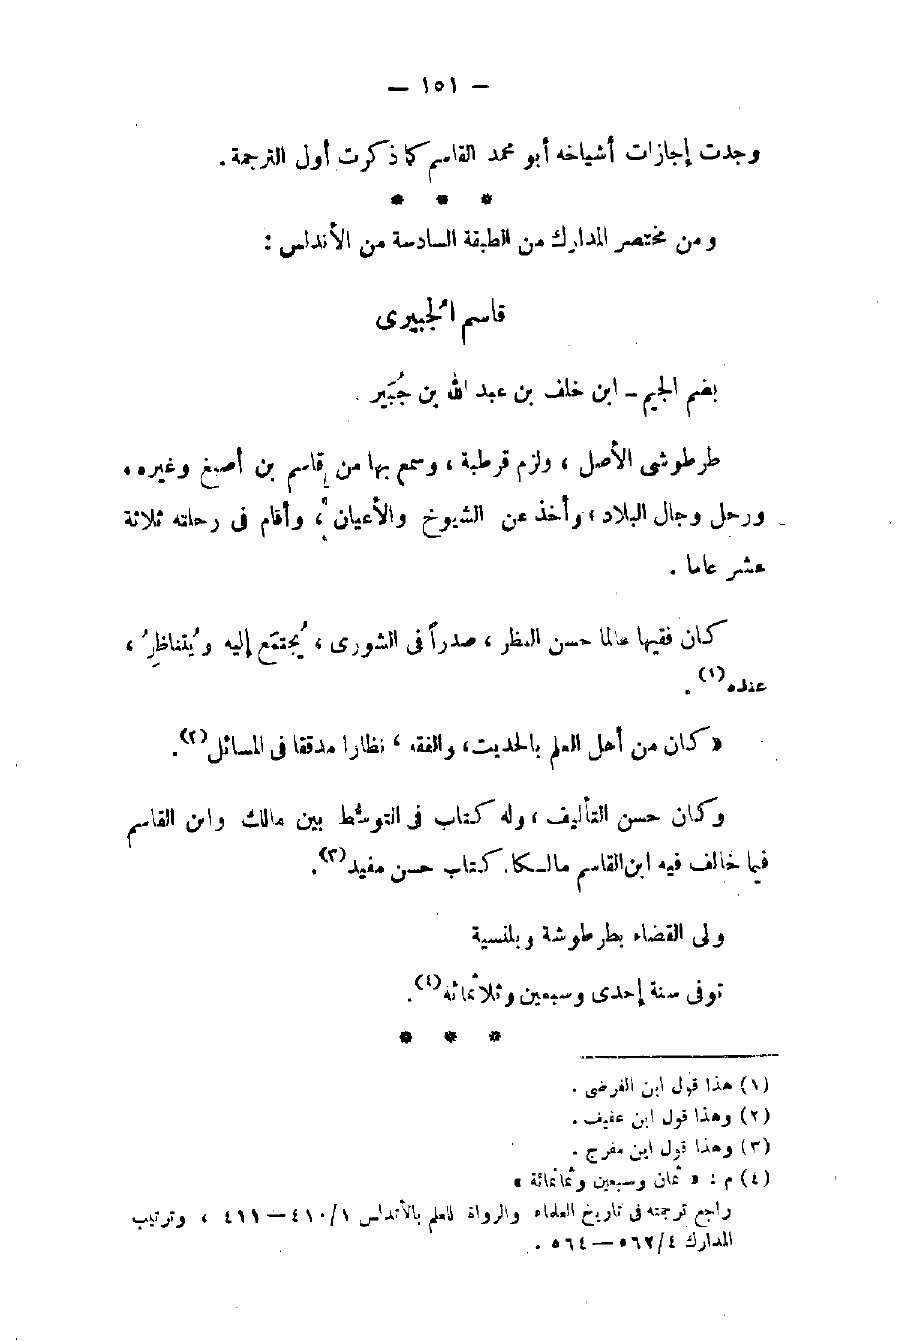 — ١٥١ —
وجدت إجازات أشياخه أبو محمد القاسم كما ذكرت أول الترجمة .
* * *
ومن مختصر المدارك من الطبقة السادسة من الأندلس :
قاسم الجُبيرى
بضم الجيم – ابن خلف بن عبد الله بن جُبَير .
طرطوشى الأصل ، ولزم قرطبة ، وسمع بها من قاسم بن أصبغ وغيره ،
ورحل وجال البلاد ، وأخذ عن الشيوخ والأعيان ، وأقام فى رحلته ثلاثة
عشر عاما .
كان فقيها عالما حسن النظر ، صدراً فى الشورى ، يُجتمَع إليه ويُتناظرُ ،
عنده (١) .
« كان من أهل العلم بالحديث ، والفقه ، نظارا مدققا فى المسائل (٢) .
وكان حسن التأليف ، وله كتاب فى التوسُّط بين مالك وابن القاسم
فيما خالف فيه ابن القاسم مالكا . كتاب حسن مفيد (٣) .
ولى القضاء بطرطوشة وبلنسية
توفى سنة إحدى وسبعين وثلاثمائه (٤) .
* * *
(١) هذا قول ابن الفرضى .
(٢) وهذا قول ابن عفيف .
(٣) وهذا قول ابن مفرج .
(٤) م : « ثمان وسبعين وثمانمائة »
راجع ترجمته فى تاريخ العلماء والرواة للعلم بالأندلس ١/٤١٠ — ٤١١ ، وترتيب
المدارك ٤/٥٦٢ — ٥٦٤ .